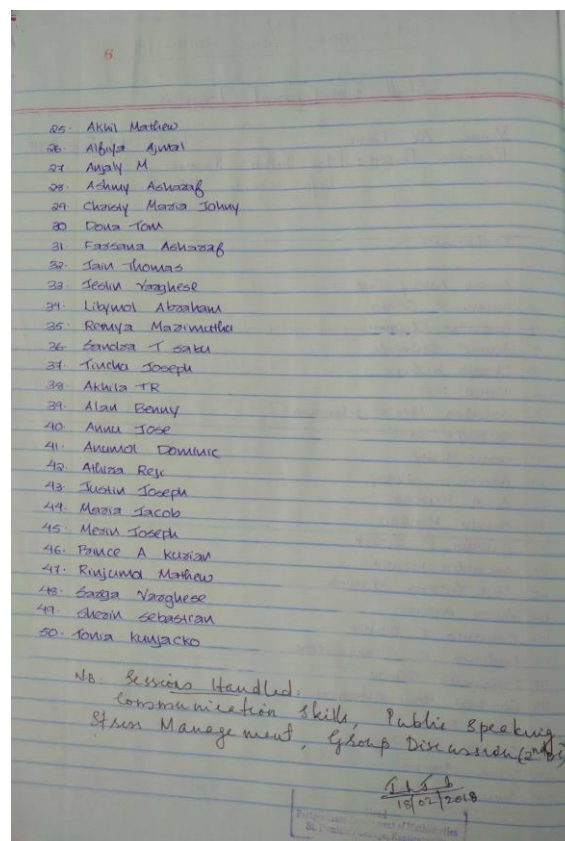 6
25. Akhil Mathew
26. Albiya Ajmal
27 Anjaly M
28. Ashmy Asharaf
29. Christy Maria Johny
30 Dona Tom
31. Farsana Asharaf
32. Jain Thomas
33. Jeslin Varghese
34. Libymol Abraham
35. Remya Marimuthu
36. Sandra T Sabu
37. Tincha Joseph
38. Akhila TR
39. Alan Benny
40. Annu Jose
41. Anumol Dominic
42. Athira Reji
43. Justin Joseph
44. Maria Jacob
45. Merin Joseph
46. Prince A Kurian
47. Rinjumol Mathew
48. Sarga Varghese
49. Sherin Sebastian
50. Tonia Kunjacko
NB: Sessions Handled:
Communication Skills, Public Speaking
Stress Management, Group Discussion (2nd
18/02/2018
Postgraduate Department of Mathematics
St. Dominic's College,